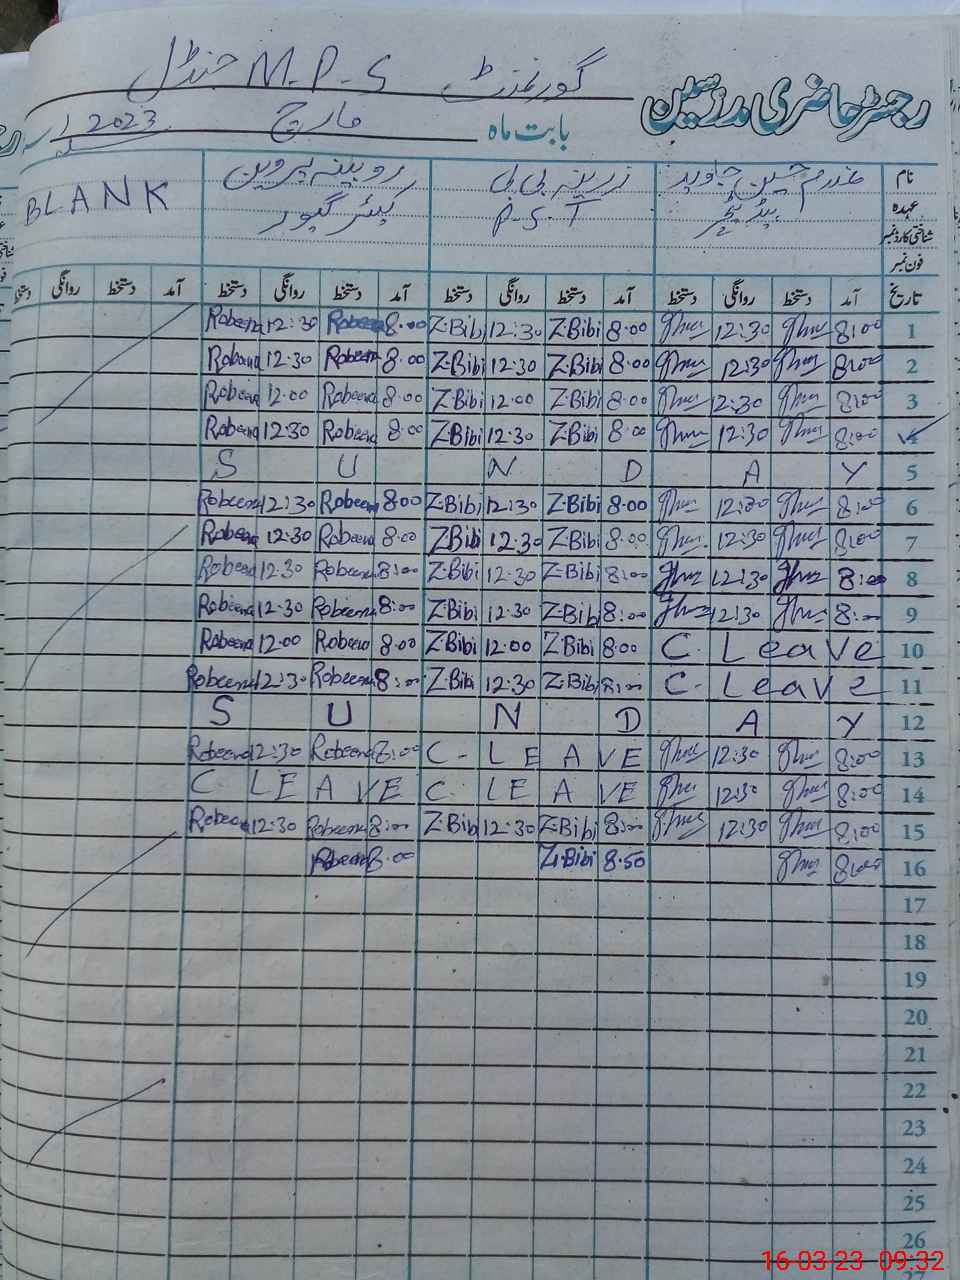 رجسٹر حاضری مدرسین گورنمنٹ M.P.S جنڈل
بابت ماہ مارچ 2023
نام غلام حسین جاوید زرینہ بی بی روبینہ پروین BLANK
عہدہ ہیڈ ٹیچر P.S.T کیئر گیور
شناختی کارڈ نمبر
فون نمبر
تاریخ آمد دستخط روانگی دستخط آمد دستخط روانگی دستخط آمد دستخط روانگی دستخط آمد دستخط روانگی دستخط
Robeena 12:30 Robeena 8.00 Z.Bibi 12:30 Z.Bibi 8.00 12:30 8:00 1
Robeena 12.30 Robeena 8.00 Z.Bibi 12.30 Z.Bibi 8.00 12:30 8:00 2
Robeena 12.00 Robeena 8.00 Z.Bibi 12.00 Z.Bibi 8.00 12:30 8:00 3
Robeena 12.30 Robeena 8.00 Z.Bibi 12.30 Z.Bibi 8.00 12:30 8:00 4
S U N D A Y 5
Robeena 12:30 Robeena 8.00 Z.Bibi 12:30 Z.Bibi 8.00 12:30 8:00 6
Robeena 12.30 Robeena 8.00 Z.Bibi 12.30 Z.Bibi 8.00 12:30 8:00 7
Robeena 12.30 Robeena 8:00 Z.Bibi 12.30 Z.Bibi 8:00 12:30 8:00 8
Robeena 12.30 Robeena 8:00 Z.Bibi 12.30 Z.Bibi 8:00 12:30 8:00 9
Robeena 12.00 Robeena 8.00 Z.Bibi 12.00 Z.Bibi 8.00 C. Leave 10
Robeena 12:30 Robeena 8:00 Z.Bibi 12.30 Z.Bibi 8:00 C. Leave 11
S U N D A Y 12
Robeena 12:30 Robeena 8:00 C- LEAVE 12:30 8:00 13
C. LEAVE C. LEAVE 12:30 8:00 14
Robeena 12:30 Robeena 8:00 Z.Bibi 12:30 Z.Bibi 8:00 12:30 8:00 15
Robeena 8.00 Z.Bibi 8.50 8:00 16
17
18
19
20
21
22
23
24
25
26
27
16-03-23 09:32